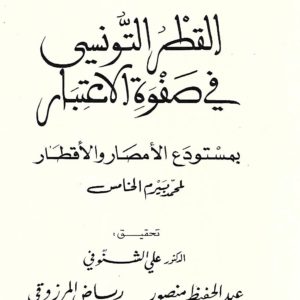 القطر التونسي
في صفوة الاعتبار
بمستودع الأمصار والأقطار
لمحمد بيرم الخامس
تحقيق :
الدكتور علي الشنوفي
عبد الحفيظ منصور رياض المرزوقي